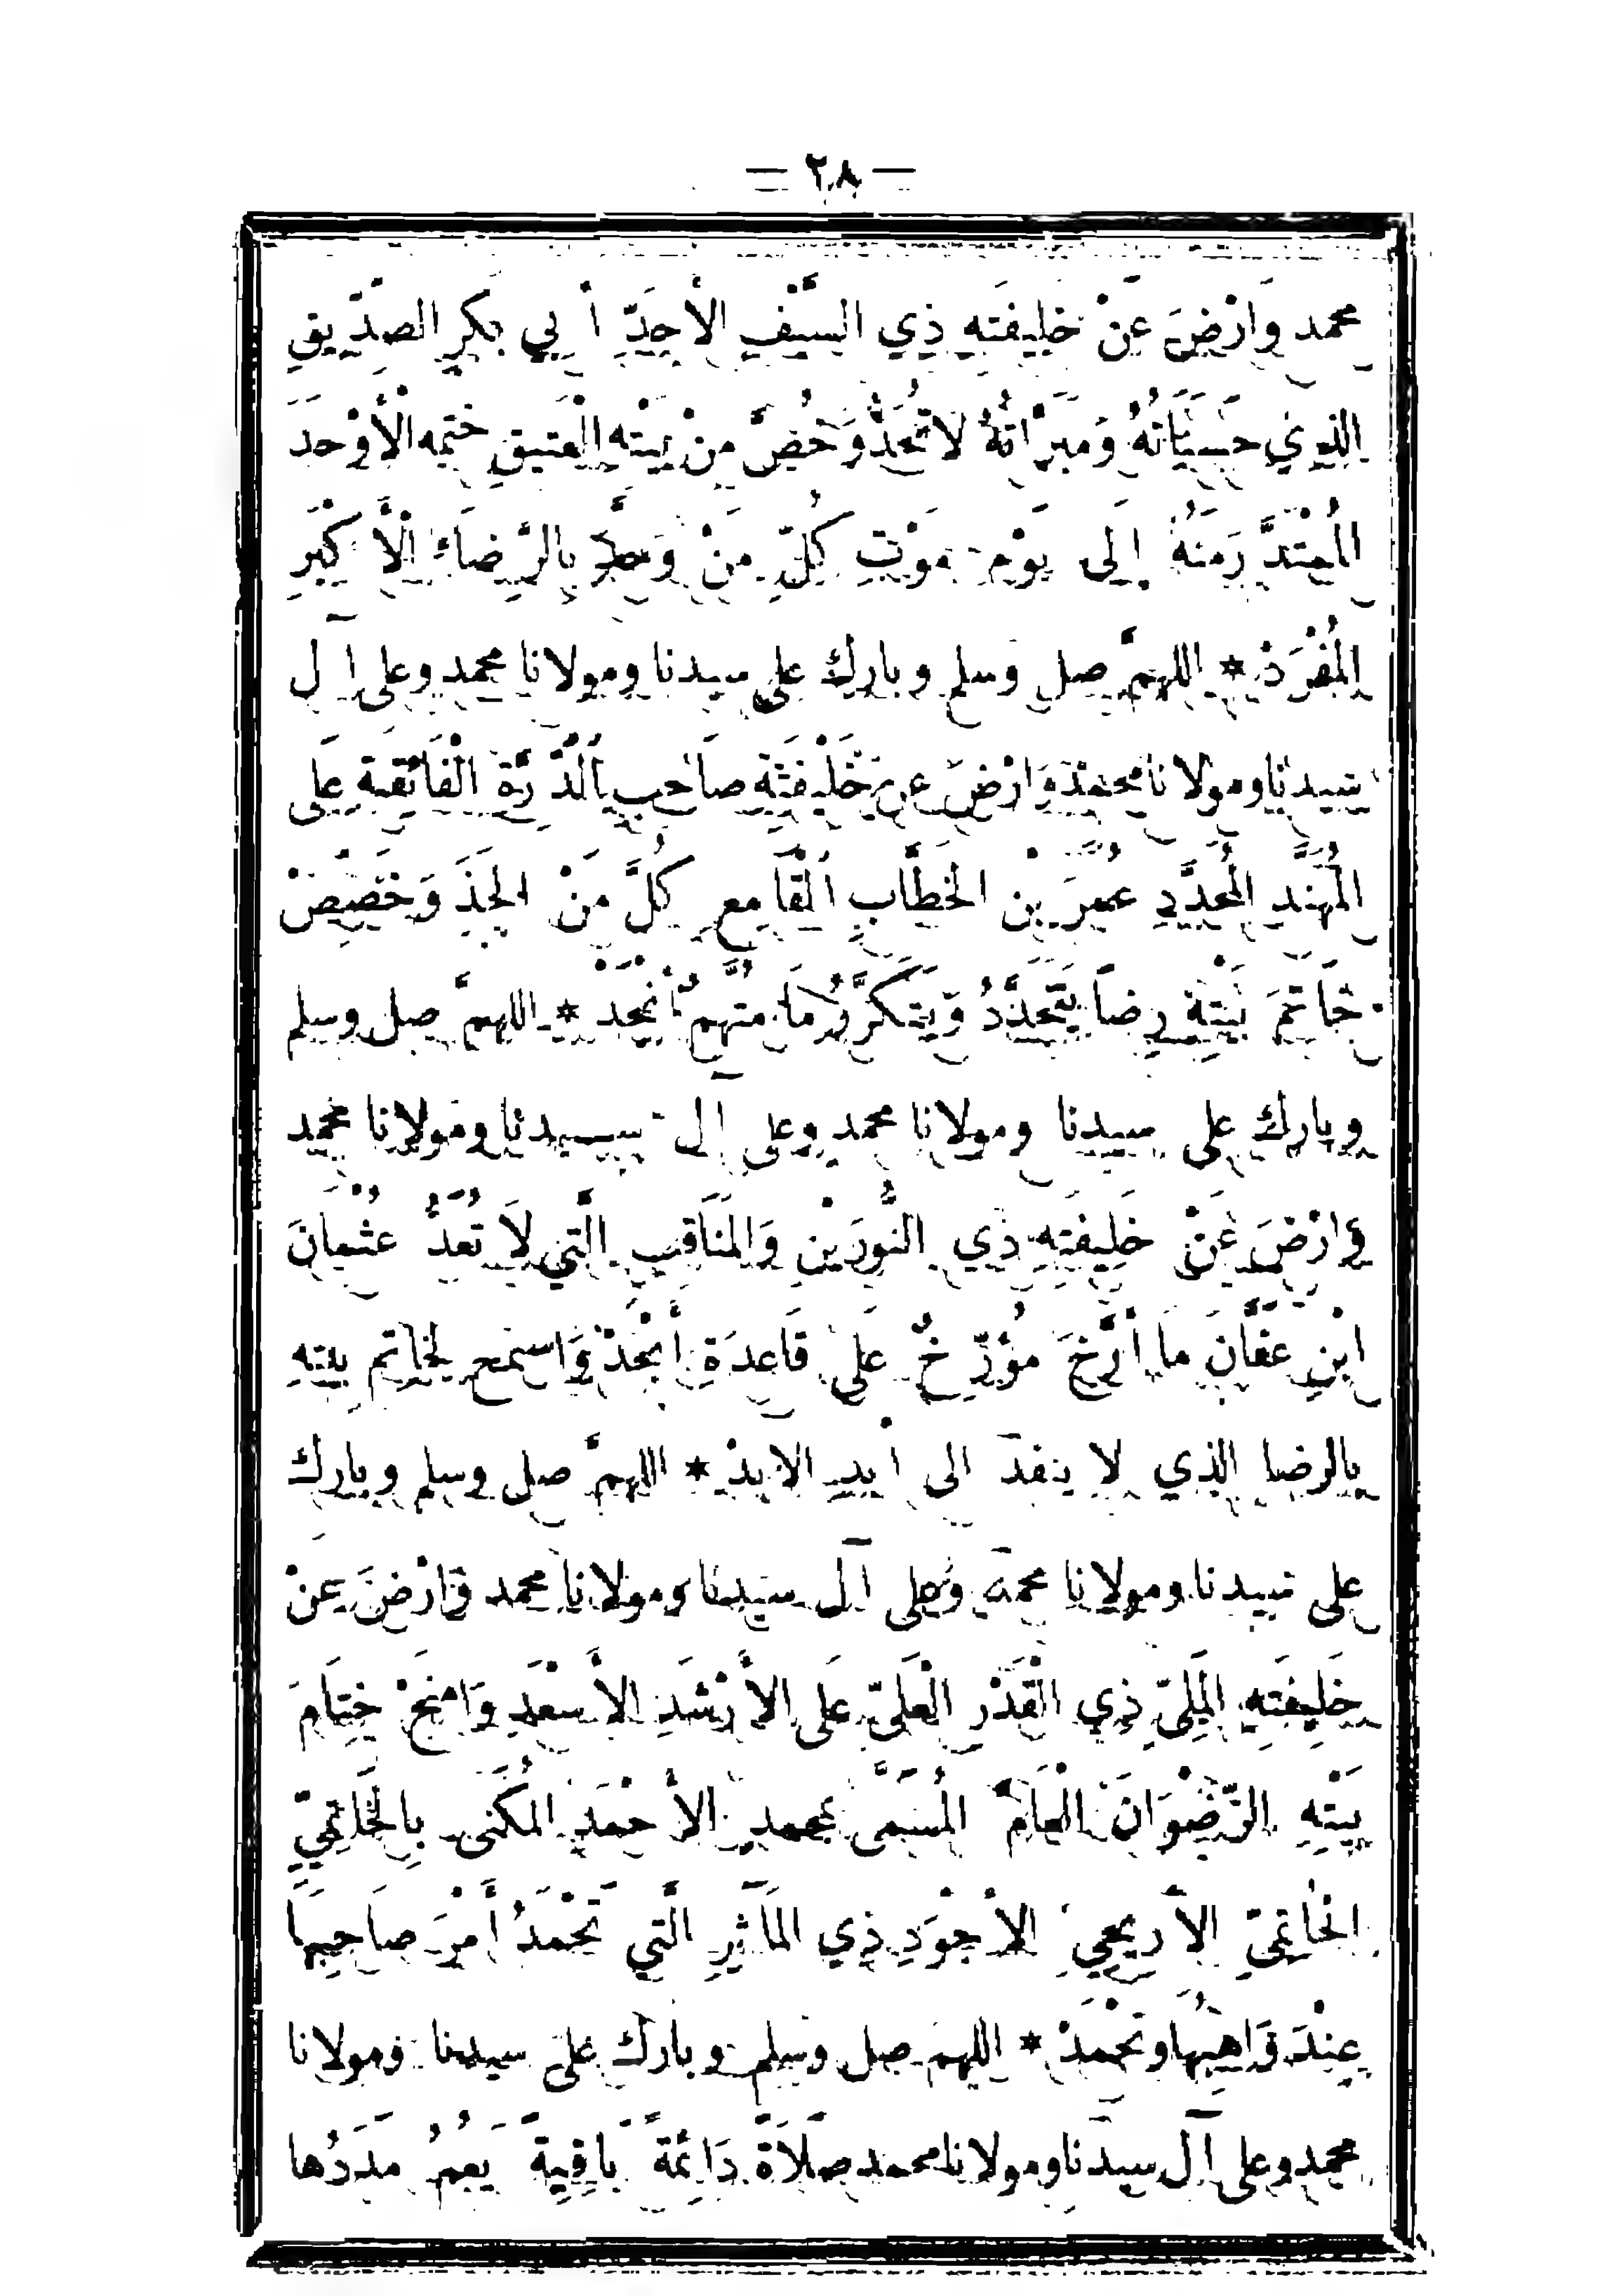 — ٢٨ —
محمد وَارْضَ عَنْ خَلِيفَتِهِ ذِي السَّيْفِ الأَحِدِّ أَبِي بَكْرٍ الصِّدِّيقِ
الذي حَسَنَاتُهُ وَمَبَرَّاتُهُ لَا تُحَدُّ وَخُصَّ مِنْ بَيْتِهِ الْعَتِيقِ خَتْمَه الْأَوْحَدَ
الْمُمْتَدَّ زَمَنُهُ إِلَى يَوْمِ مَوْتِ كُلِّ مَنْ وَحَّدَ بِالرِّضَاءِ الْأَكْبَرِ
الْمُفْرَدْ * اللهمَّ صل وسلم وبارك على سيدنا ومولانا محمد وعلى آل
سيدنا ومولانا محمد وَارْضَ عن خَلِيفَتِهِ صَاحِبِ الدِّرَّةِ الْفَائِقَةِ عَلَى
الْمُهَنَّدِ الْمُحَدَّدِ عُمَرَ بْنِ الخَطَّابِ الْقَامِعِ كُلَّ مَنْ الْحَدَ وَخَصِّصْ
خَاتَمَ بَيْتِهِ رِضاً يَتَجَدَّدُ وَيَتَكَرَّرُ مَا مُتْهِمٌ أَنْجَدْ * اللهمَّ صل وسلم
وبارك على سيدنا ومولانا محمد وعلى آل سيدنا ومولانا محمد
وَارْضَ عَنْ خَلِيفَتِهِ ذِي النُّورَيْنِ وَالْمَنَاقِبِ الَّتِي لَا تُعَدُّ عُثْمَانَ
ابْنِ عَفَّانَ مَا أَرَّخَ مُؤَرِّخٌ عَلَى قَاعِدَةِ أَبْجَدْ وَاسْمَحْ لِخَاتِمِ بيتِهِ
بالرضا الذي لا ينفد الى أبدِ الابدْ * اللهمَّ صل وسلم وبارك
على سيدنا ومولانا محمد وعلى آل سيدنا ومولانا محمد وَارْضَ عَنْ
خَلِيفَتِهِ الْمَلِيِّ ذِي الْقَدْرِ الْعَلِيِّ عَلِي الأَرْشَدِ الأَسْعَدِ وَامْنَحْ خِتَامَ
بَيْتِهِ الرِّضْوَانَ الْعَامَّ الْمُسَمَّى بمحمد الأَحْمَدِ الْمُكَنَّى بِالْخَاتِمِيِّ
الْحَاتِمِيِّ الأَرْيَحِيِّ الأَجْوَدِ ذِي الْمَآثِرِ الَّتِي تَحْمَدُ أَمْرَ صَاحِبِهَا
عِنْدَ وَاهِبِهَا وتُحْمَدْ * اللهمَّ صل وسلم وبارك على سيدنا ومولانا
محمد وعلى آل سيدنا ومولانا محمد صَلَاةً دَائِمَةً بَاقِيَةً يَعُمُّ مَدَدُها